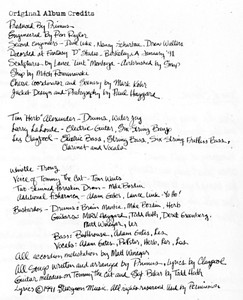 Original Album Credits
Produced By Primus
Engineered by Ron Rigler
Second Engineers - Dave Luke, Nancy Scharlau, Drew Walters
Recorded at Fantasy "D" Studio - Berkeley, CA January '91
Sculptures by Lance "Link" Montoya - Airbrushed by Snap
Snap by Mitch Romanauski
Cheese coordination and Scenery by Mark Kohr
Jacket Design and Photography by Paul Haggard
Tim "Herb" Alexander - Drums, Water Jug
Larry LaLonde - Electric Guitar, Six String Banjo
Les Claypool - Electric Bass, String Bass, Six String Fretless Bass,
Clarinet and Vocals
Whistle - Trouz
Voice of Tommy the Cat - Tom Waits
Two-Skinned Forsaken Drum - Mike Bordin
Additional Fishermen - Adam Gates, Lance Link - Yo Ho!
Bastards - Drums: Brain Mantia, Mike Bordin, Herb
Guitars: MIRV Haggard, Todd Huth, Derek Greenberg,
Matt Winegar, Ler
Bass: Bullhouse, Adam Gates, Les
Vocals: Adam Gates, Ler, Les
All accordion melotubation by Matt Winegar
All Songs written and arranged by Primus - Lyrics by Claypool
Guitar melodies on Tommy the Cat and Sgt. Baker by Todd Huth
Lyrics © 1991 Sturgeon Music. All rights reserved. Used by Permission.